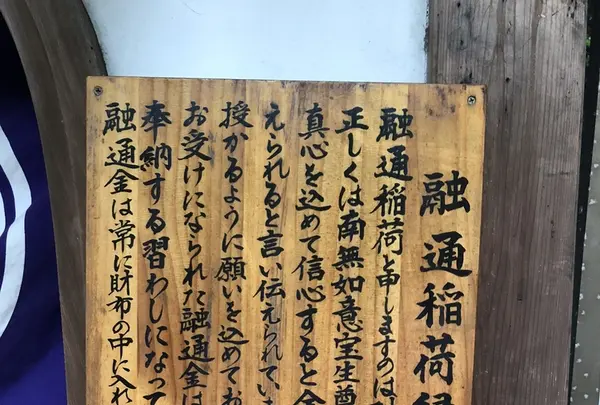 融通稲荷
融通稲荷と申しますのは
正しくは南無如意宝生尊
真心を込めて信心すると
えられると言い伝えられてい
授かるように願いを込めてお
お受けになられた融通金は
奉納する習わしになって
融通金は常に財布の中に入れ